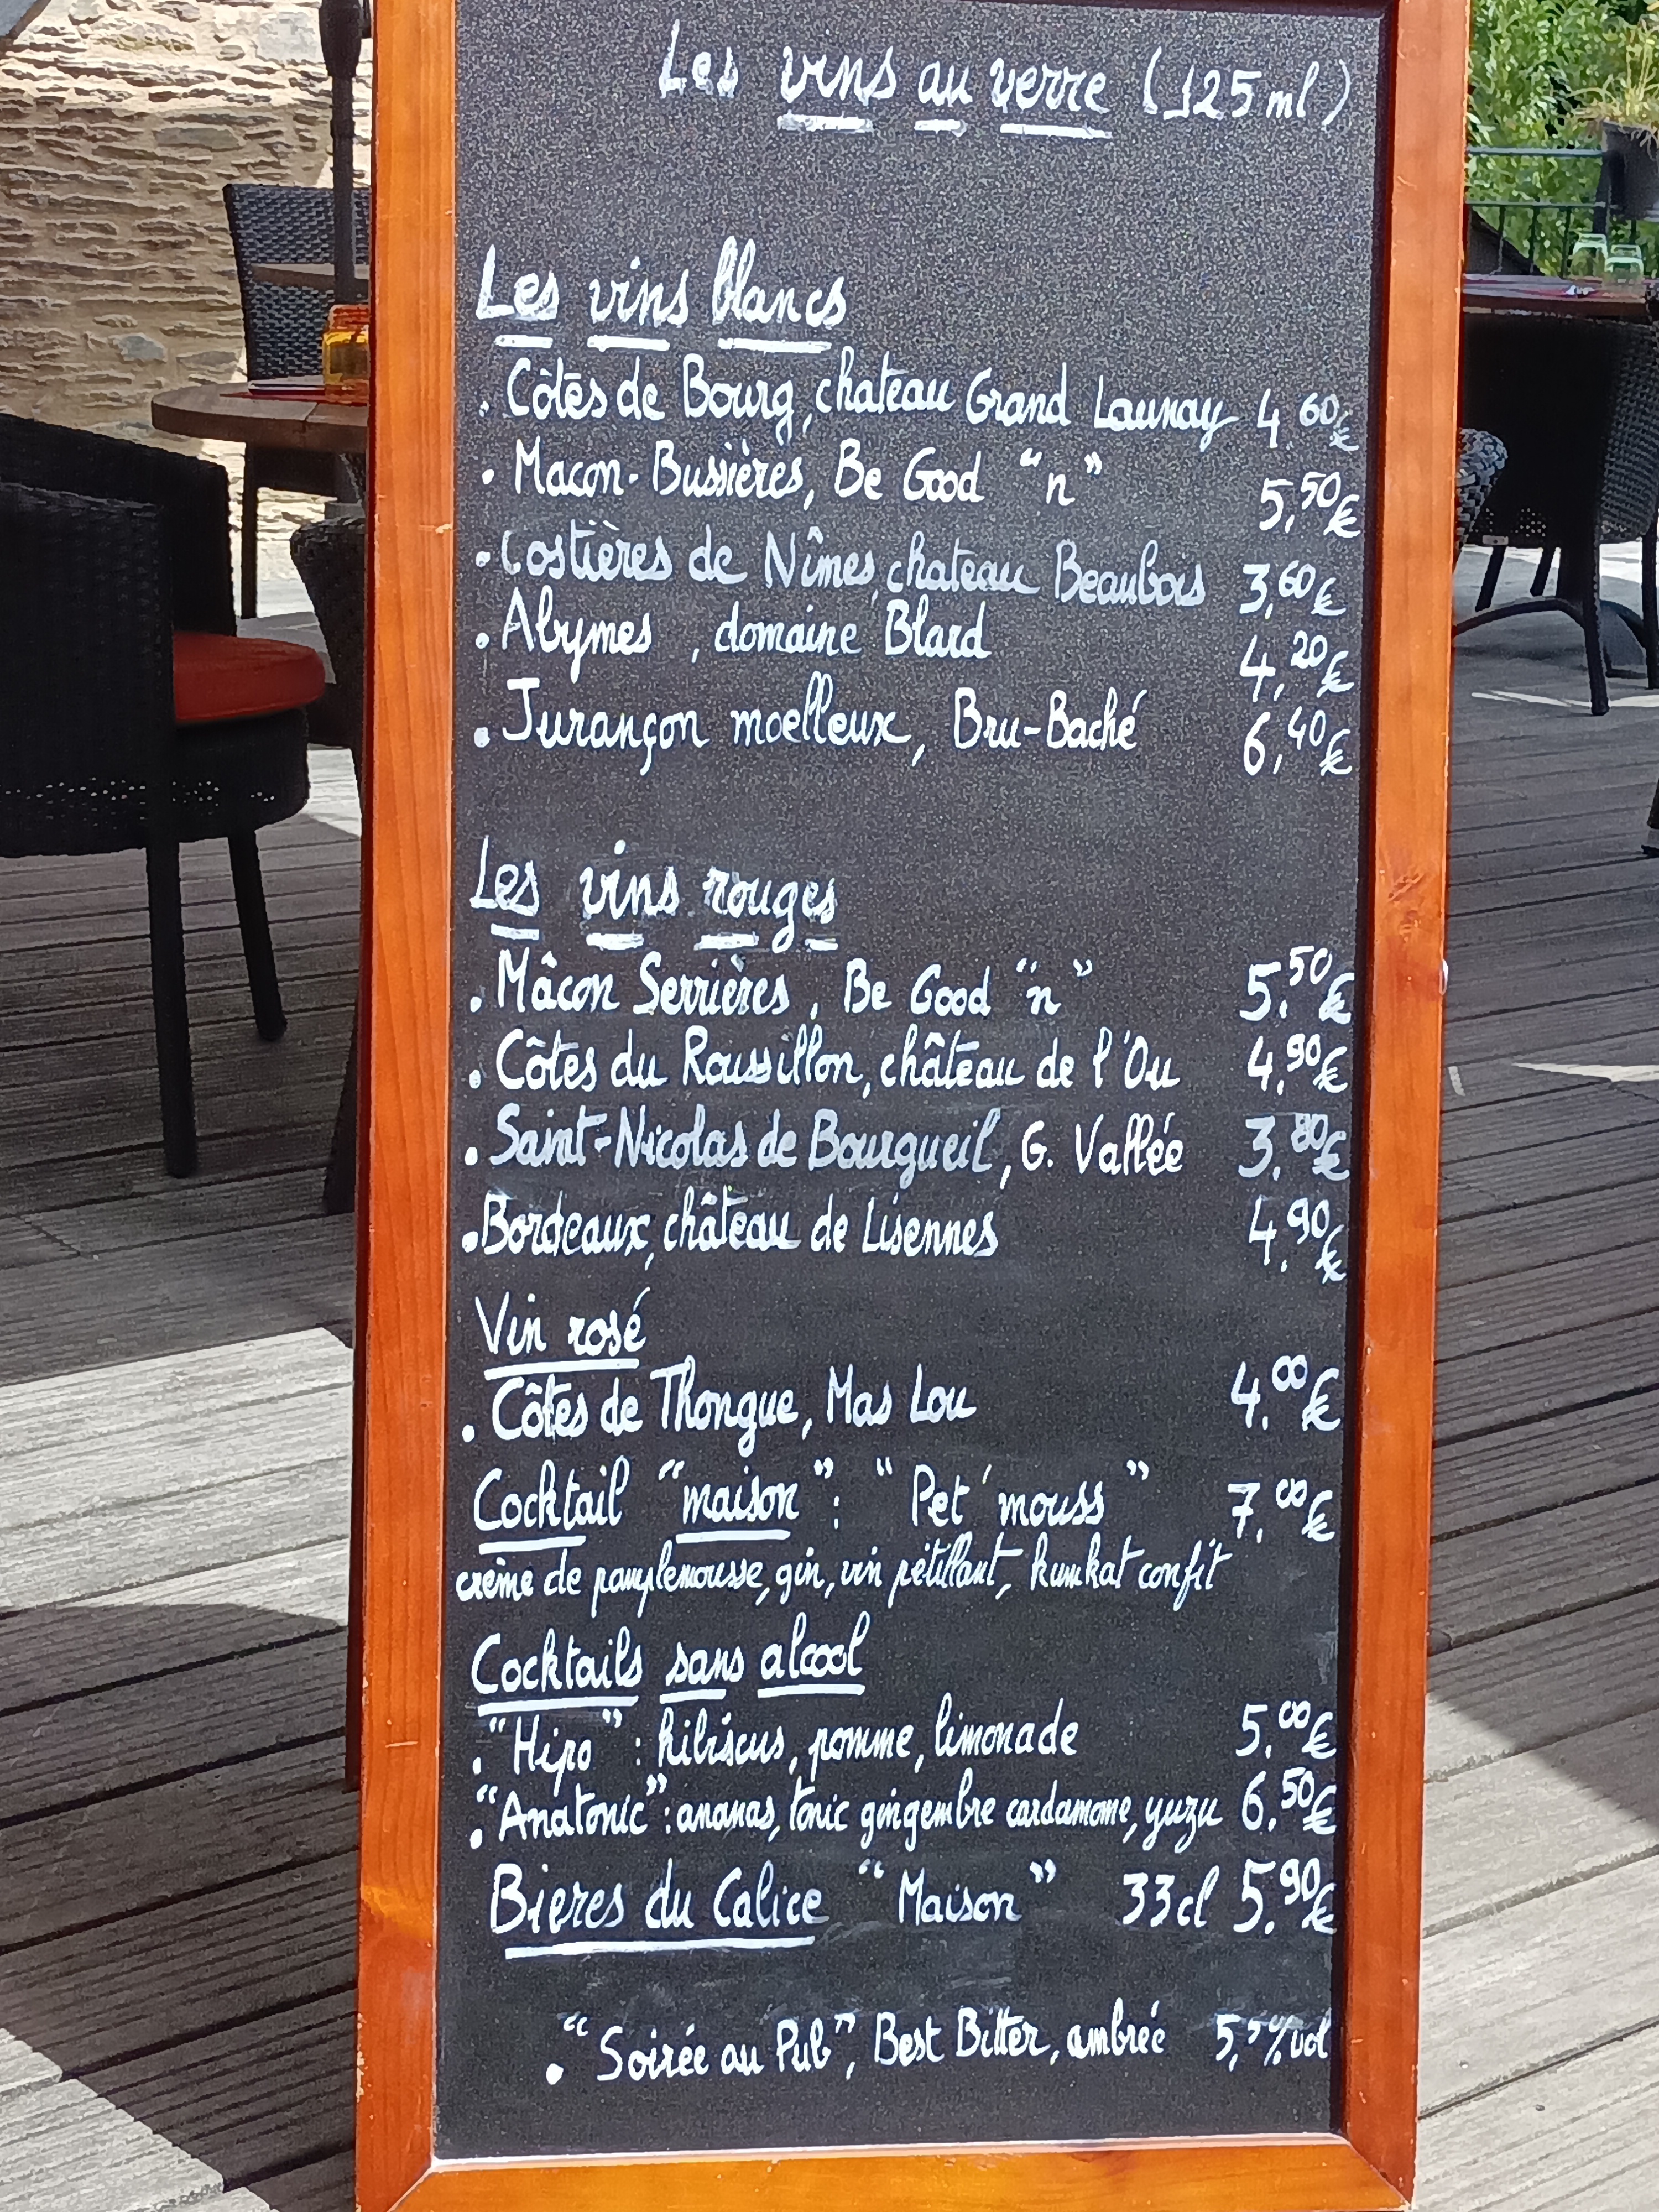 Les vins au verre (125 ml)
Les vins blancs
. Côtes de Bourg, chateau Grand Launay 4,60€
. Macon-Bussières, Be Good "n" 5,50€
. Costières de Nîmes, chateau Beaubois 3,60€
. Abymes, domaine Blard 4,20€
. Jurançon moelleux, Bru-Baché 6,40€
Les vins rouges
. Mâcon Serrières, Be Good "n" 5,50€
. Côtes du Roussillon, château de l'Ou 4,90€
. Saint-Nicolas de Bourgueil, G. Vallée 3,80€
. Bordeaux, château de Lisennes 4,90€
Vin rosé
. Côtes de Thongue, Mas Lou 4,00€
Cocktail "maison": "Pet'mouss" 7,00€
crème de pamplemousse, gin, vin pétillant, kumkat confit
Cocktails sans alcool
. "Hipo": hibiscus, pomme, limonade 5,00€
. "Anatonic": ananas, tonic gingembre cardamome, yuzu 6,50€
Bieres du Calice "Maison" 33cl 5,90€
. "Soirée au Pub", Best Bitter, ambrée